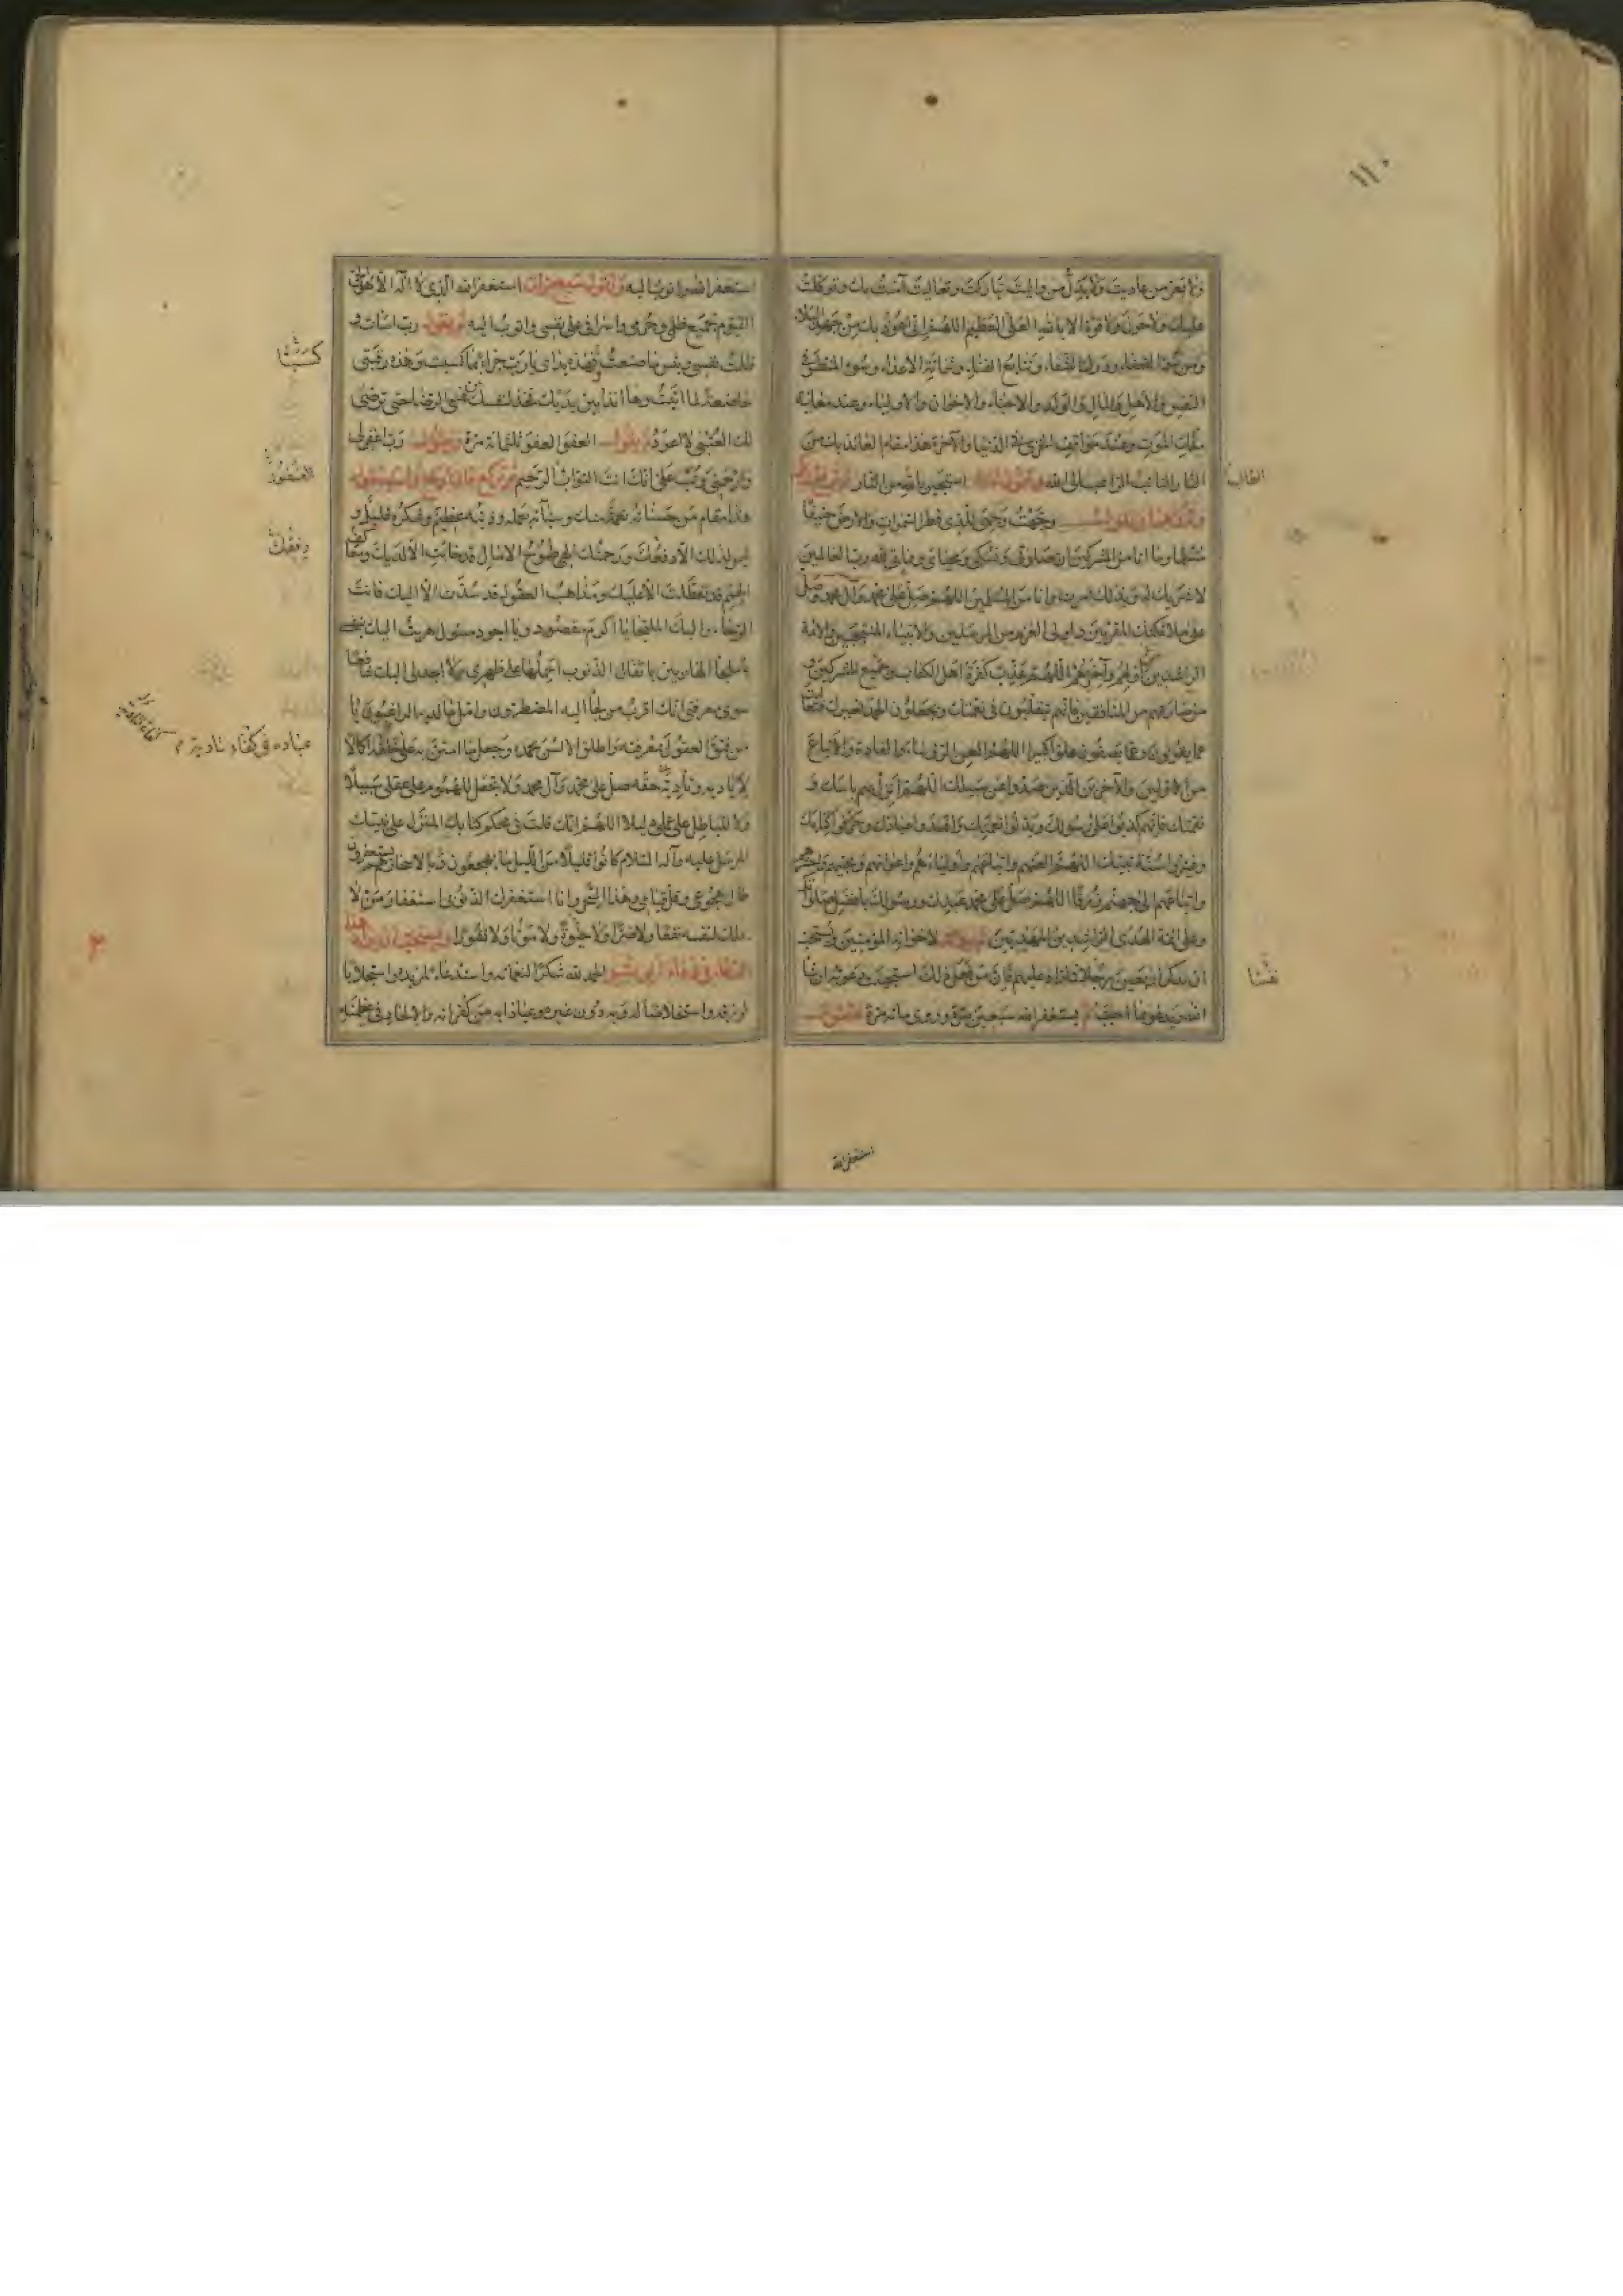 ١١٠
ولا يعز من عاديت ولا يذل من واليت تباركت وتعاليت آمنت بك وتوكلت
عليك ولا حول ولا قوة الا بالله العلي العظيم اللهم اني اعوذ بك من جهد البلاء
ومن سوء القضاء ودرك الشقاء وتتابع الفناء وشماتة الاعداء وسوء المنظر في
النفس والاهل والمال والولد والاحباء والاخوان والاولياء وعند معاينة
ملك الموت وعند مواقف الخزي في الدنيا والآخرة هذا مقام العائذ بك من
النار التائب الراغب الى الله استجير بالله من النار
الطالب
وجهت وجهي للذي فطر السموات والارض حنيفا
مسلما وما انا من المشركين ان صلوتي ونسكي ومحياي ومماتي لله رب العالمين
لا شريك له وبذلك امرت وانا من المسلمين اللهم صل على محمد وآل محمد وصل
على ملائكتك المقربين واولي العزم من المرسلين والانبياء المنتجبين والائمة
الراشدين اولهم وآخرهم اللهم عذب كفرة اهل الكتاب وجميع المشركين و
من ضارعهم من المنافقين فانهم يتقلبون في نعمتك ويجحدون فتعاليت
عما يقولون وعما يصفون علوا كبيرا اللهم العن الرؤساء والقادة والاتباع
من الاولين والآخرين الذين صدوا عن سبيلك اللهم انزل بهم باسك و
نقمتك فانهم كذبوا على رسولك وبدلوا نعمتك وافسدوا عبادك وحرفوا كتابك
وغيروا سنة نبيك اللهم العنهم واتباعهم واولياءهم واعوانهم ومحبيهم واحشرهم
واتباعهم الى جهنم زرقا اللهم صل على محمد عبدك ورسولك بافضل صلواتك
وعلى ائمة الهدى الراشدين المهديين لاخوانه المؤمنين ويستحب
ان يذكر اربعين رجلا فما زاد عليهم فان من فعل ذلك استجيبت دعوته ان شاء
نسا
الله ويدعو بما احب ثم يستغفر الله سبعين مرة وروى مائة مرة
استغفر الله
استغفر الله واتوب اليه ويقول سبع مرات استغفر الله الذي لا اله الا هو الحي
القيوم لجميع ظلمي وجرمي واسرافي على نفسي واتوب اليه ثم يقول رب اسأت و
ظلمت نفسي وبئس ما صنعت وهذه يداي يا رب جزاء بما كسبت وهذه رقبتي
كسبتا
خاضعة لما اتيت وها انا ذا بين يديك فخذ لنفسك من نفسي الرضا حتى ترضى
لك العتبى لا اعود ثم يقول العفو العفو ثلثمائة مرة ويقول رب اغفر لي
وارحمني وتب علي انك انت التواب الرحيم ثم يركع فاذا رفع راسه يقول
هذا مقام من حسناته نعمة منك وسيآته بعمله وذنبه عظيم وشكره قليل و
ليس لذلك الا دفعك ورحمتك الهي طموح الآمال قد خابت الا لديك ومعاكف
رفقك
الهمم قد تعطلت الا عليك ومذاهب العقول قد سدت الا اليك فانت
الرجاء واليك الملتجا يا اكرم مقصود ويا اجود مسئول هربت اليك بنفسي
يا ملجا الهاربين باثقال الذنوب احملها على ظهري وما اجد لي اليك شافعا
سوى معرفتي انك اقرب من لجأ اليه المضطرون وامل ما لديه الراغبون يا
من فتق العقول بمعرفته واطلق الالسن بحمده وجعل ما امتن به على عباده كفاء
عباده في كفاء لتادية
لتادية حقه صل على محمد وآل محمد ولا تجعل للهموم على عقلي سبيلا
ولا للباطل على عملي دليلا اللهم انك قلت في محكم كتابك المنزل على نبيك
المرسل عليه وآله السلام كانوا قليلا من الليل ما يهجعون وبالاسحار هم يستغفرون
طال هجوعي وقل قيامي وهذا السحر وانا استغفرك لذنوبي استغفار من لا
يملك لنفسه نفعا ولا ضرا ولا حيوة ولا موتا ولا نشورا
الحمد لله شكرا لنعمائه واستدعاء لمزيده واستجلابا
لرزقه واستخلاصا له وبه دون غيره وعياذا به من كفرانه والالحاد في عظمته